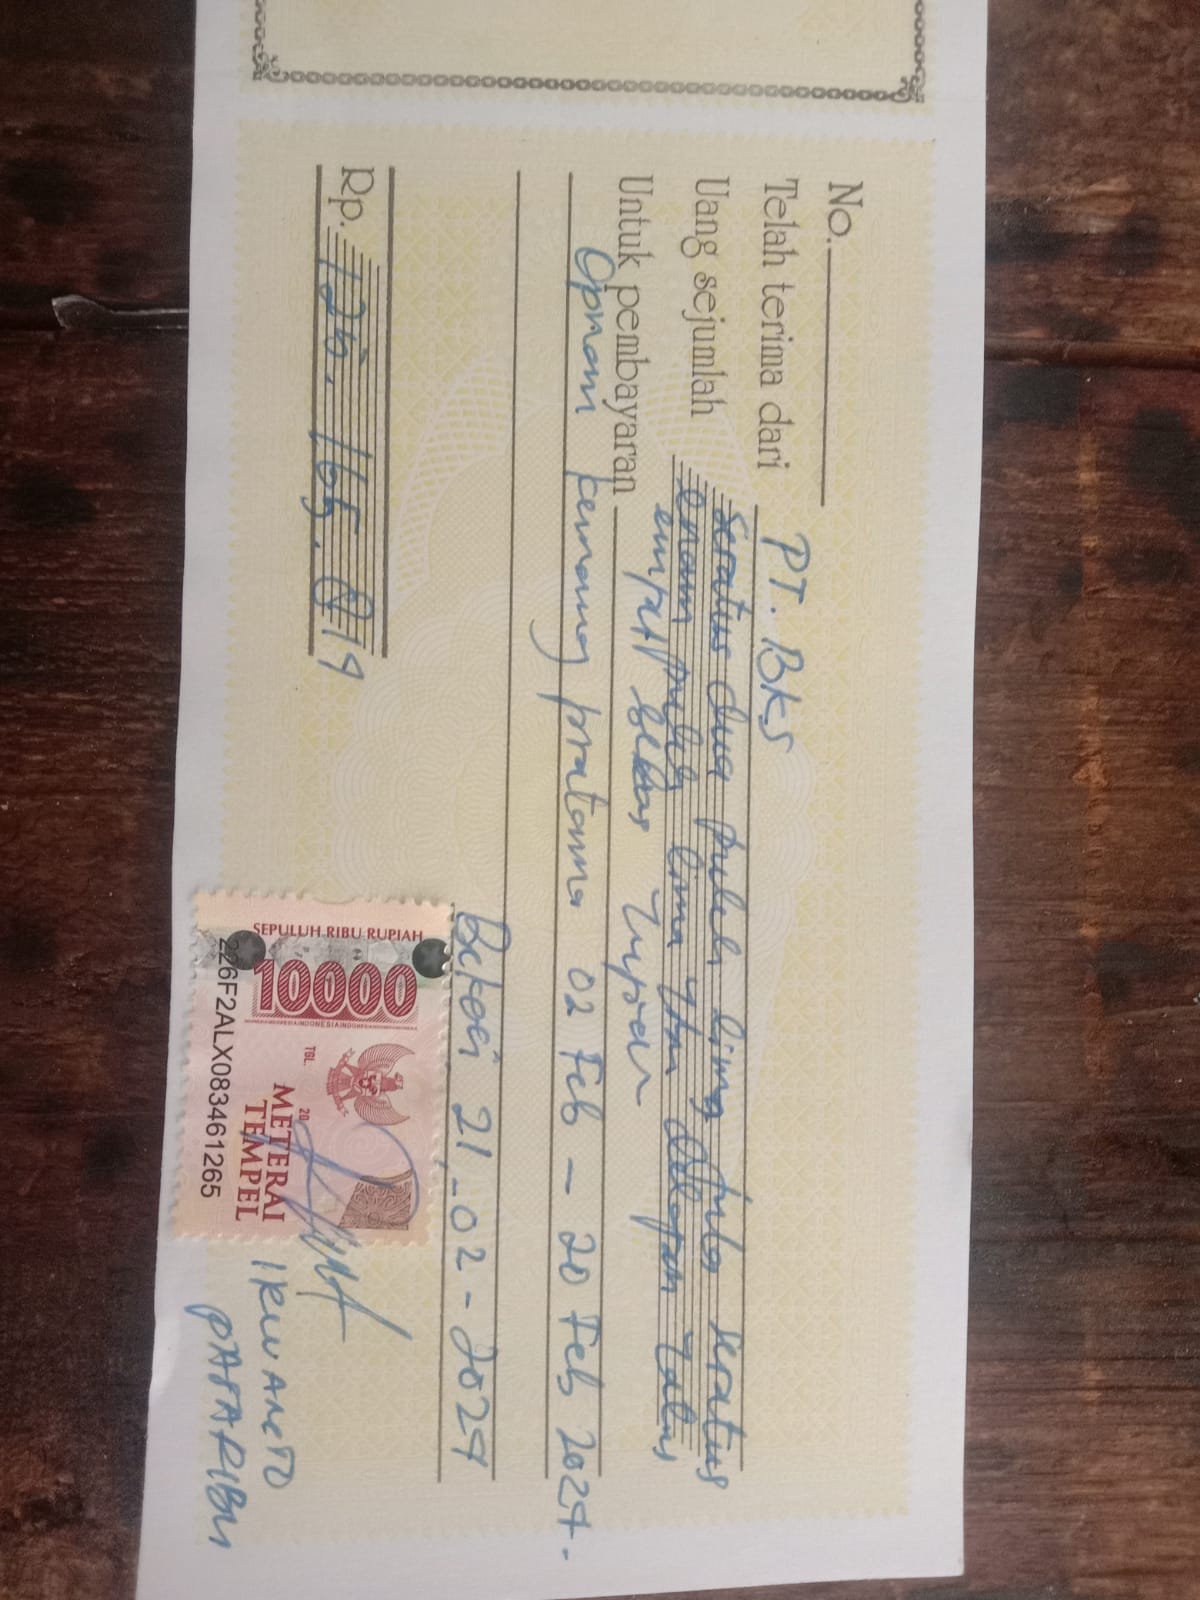 No.
Telah terima dari PT. BKS
Uang sejumlah seratus dua puluh lima juta seratus
enam puluh lima ribu delapan ratus
empat belas rupiah
Untuk pembayaran
Opnam pemanng pratama 02 Feb - 20 Feb 2024.
Bekasi 21-02-2024
Rp. 125.165.814
SEPULUH RIBU RUPIAH
10000
TGL. 20
METERAI
TEMPEL
226F2ALX083461265
PATARIBU